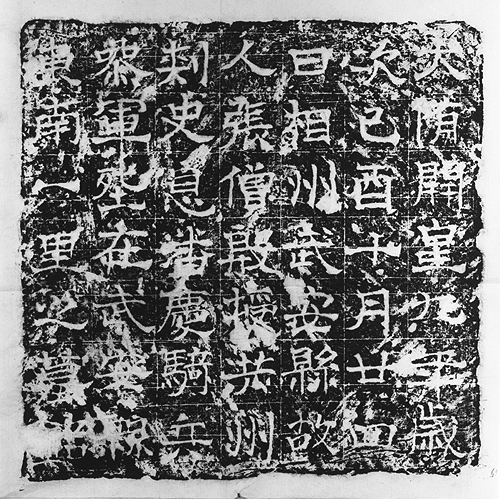 大隋開皇九年歲
次己酉十月廿四
日相州武安縣故
人張僧殷授共州
刾史息番慶騎兵
參軍塟在武安縣
東南一里之墓